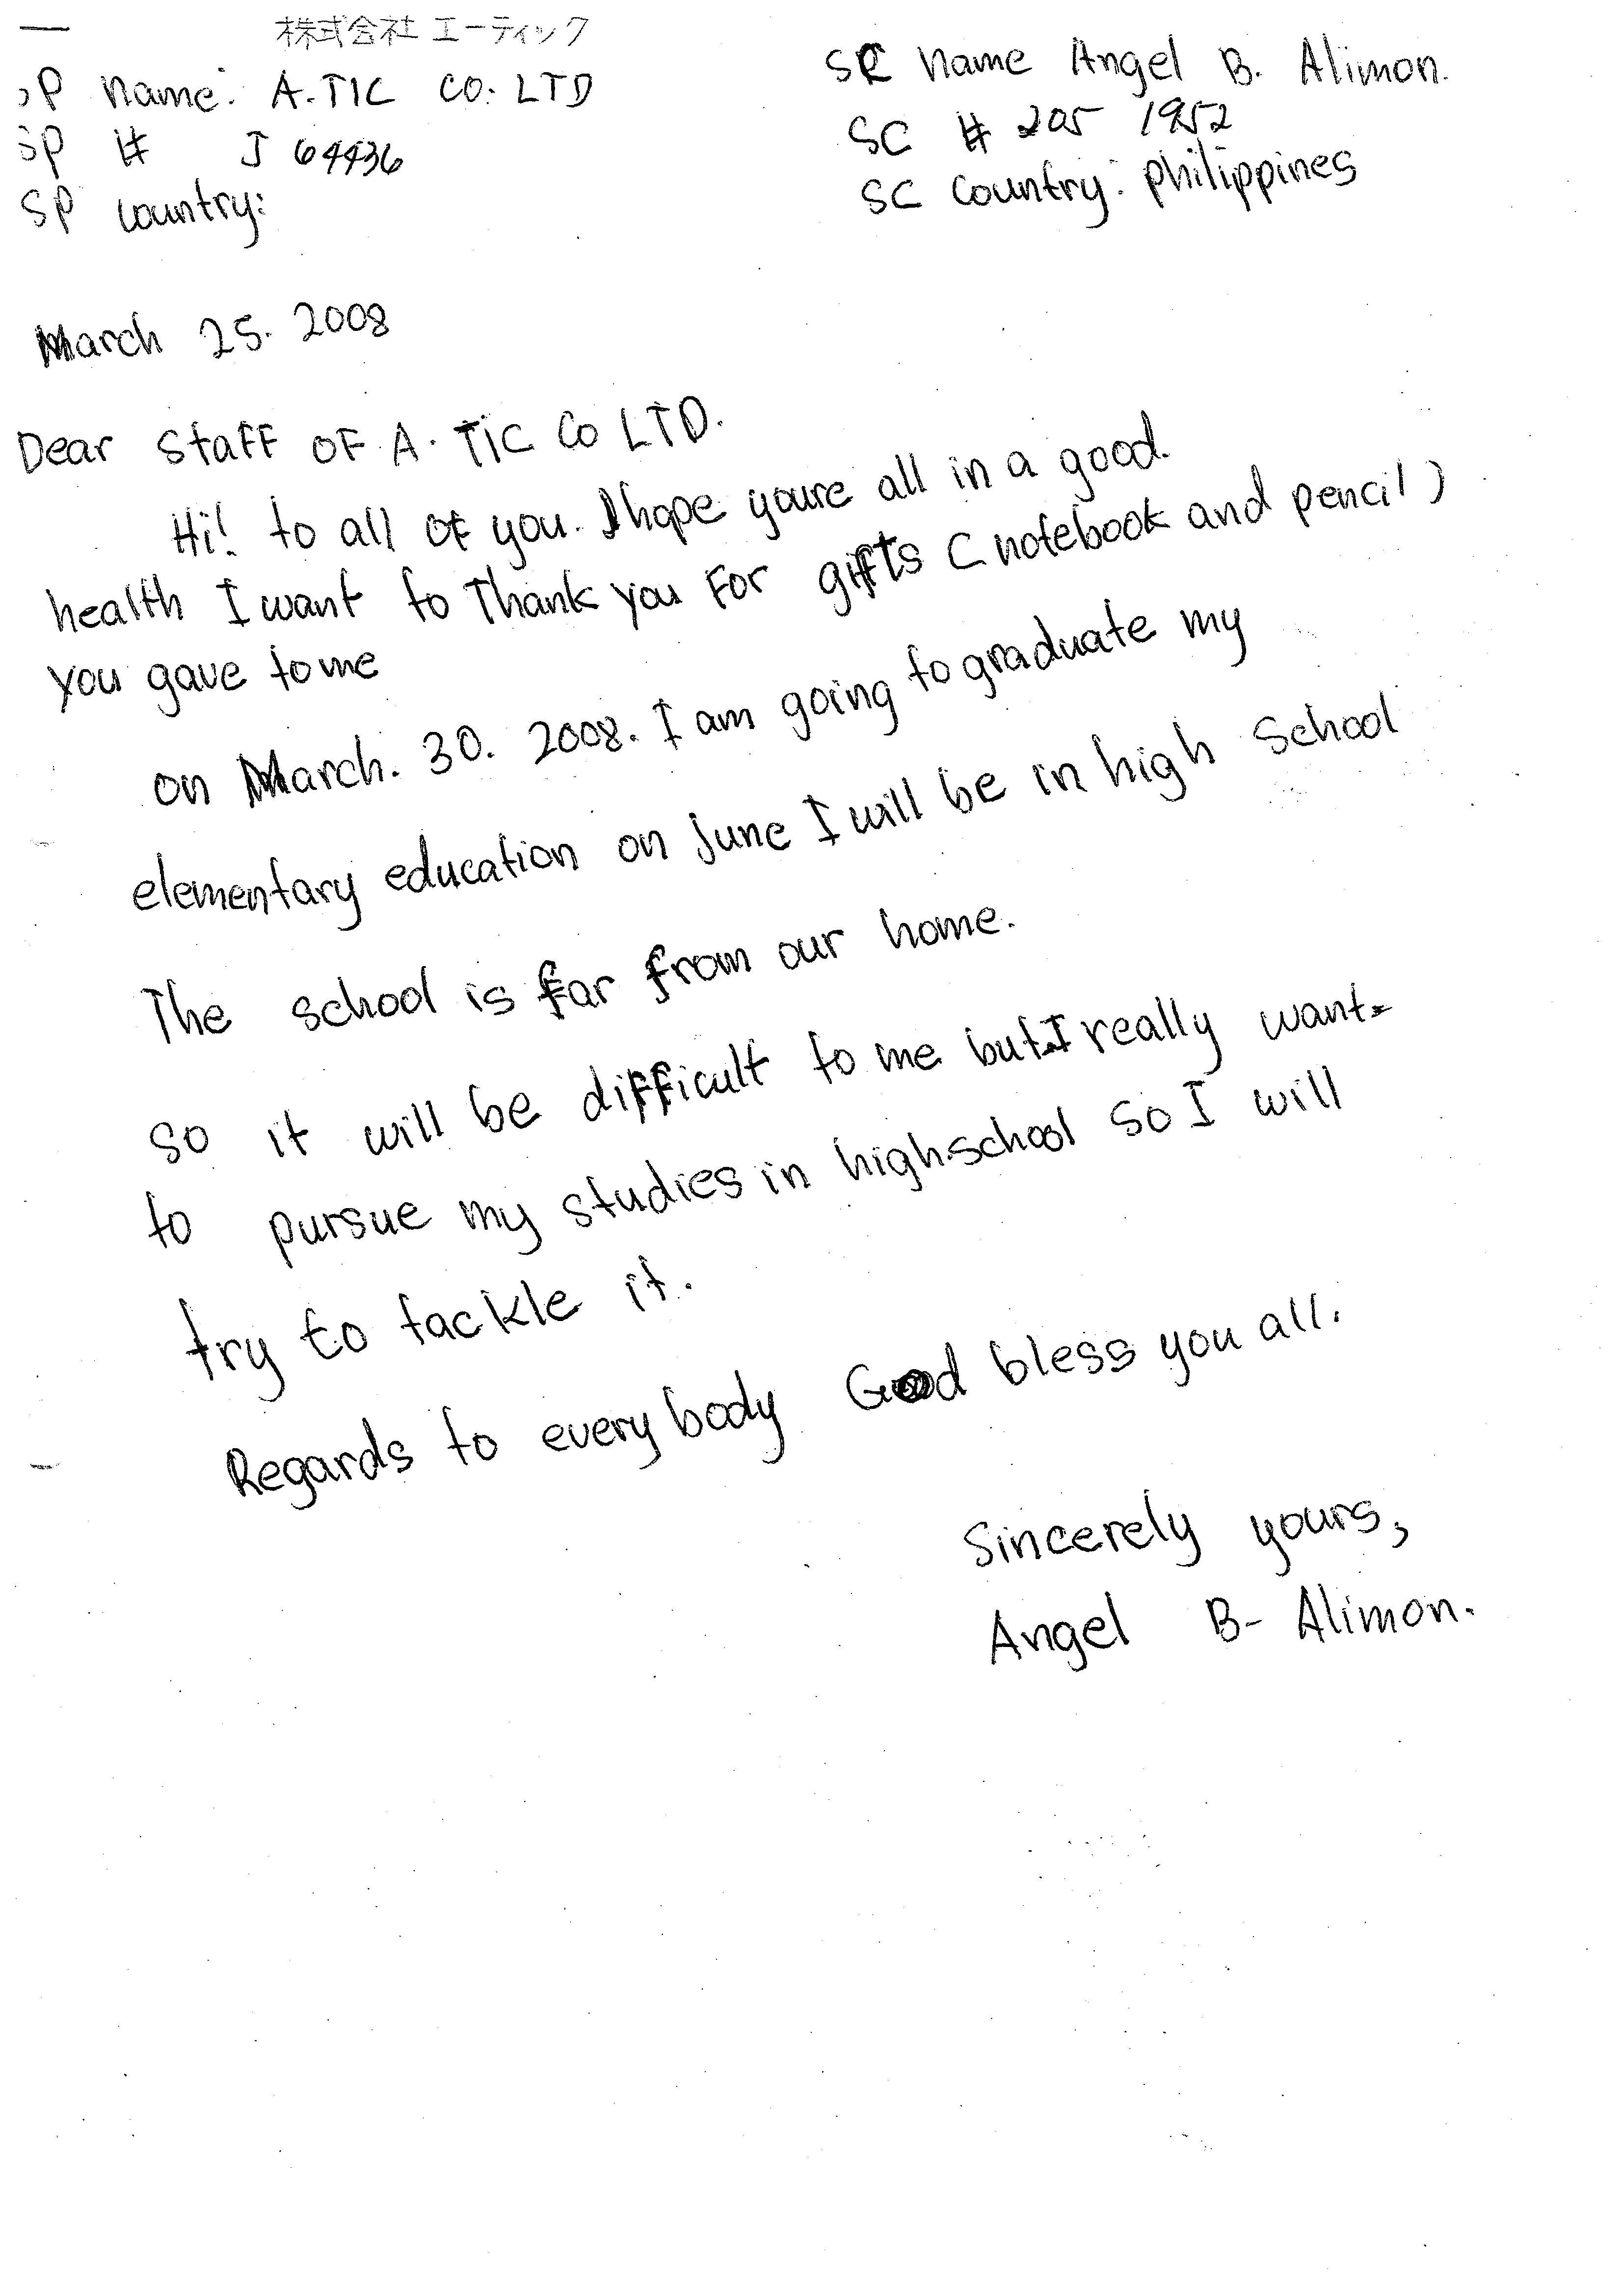 株式会社 エーティック
SP name: A.TIC CO. LTD
SP # J 64436
SP country:
SC name Angel B. Alimon.
SC # 205 1952
SC Country: philippines
March 25. 2008
Dear Staff OF A. TIC Co LTD.
Hi! to all of you. I hope youre all in a good.
health I want to Thank you For gifts (notebook and pencil)
you gave to me
on March. 30. 2008. I am going to graduate my
elementary education on june I will be in high School
The school is far from our home.
so it will be difficult to me but I really want
to pursue my studies in high-school so I will
try to tackle it.
Regards to every body God bless you all.
Sincerely yours,
Angel B- Alimon.